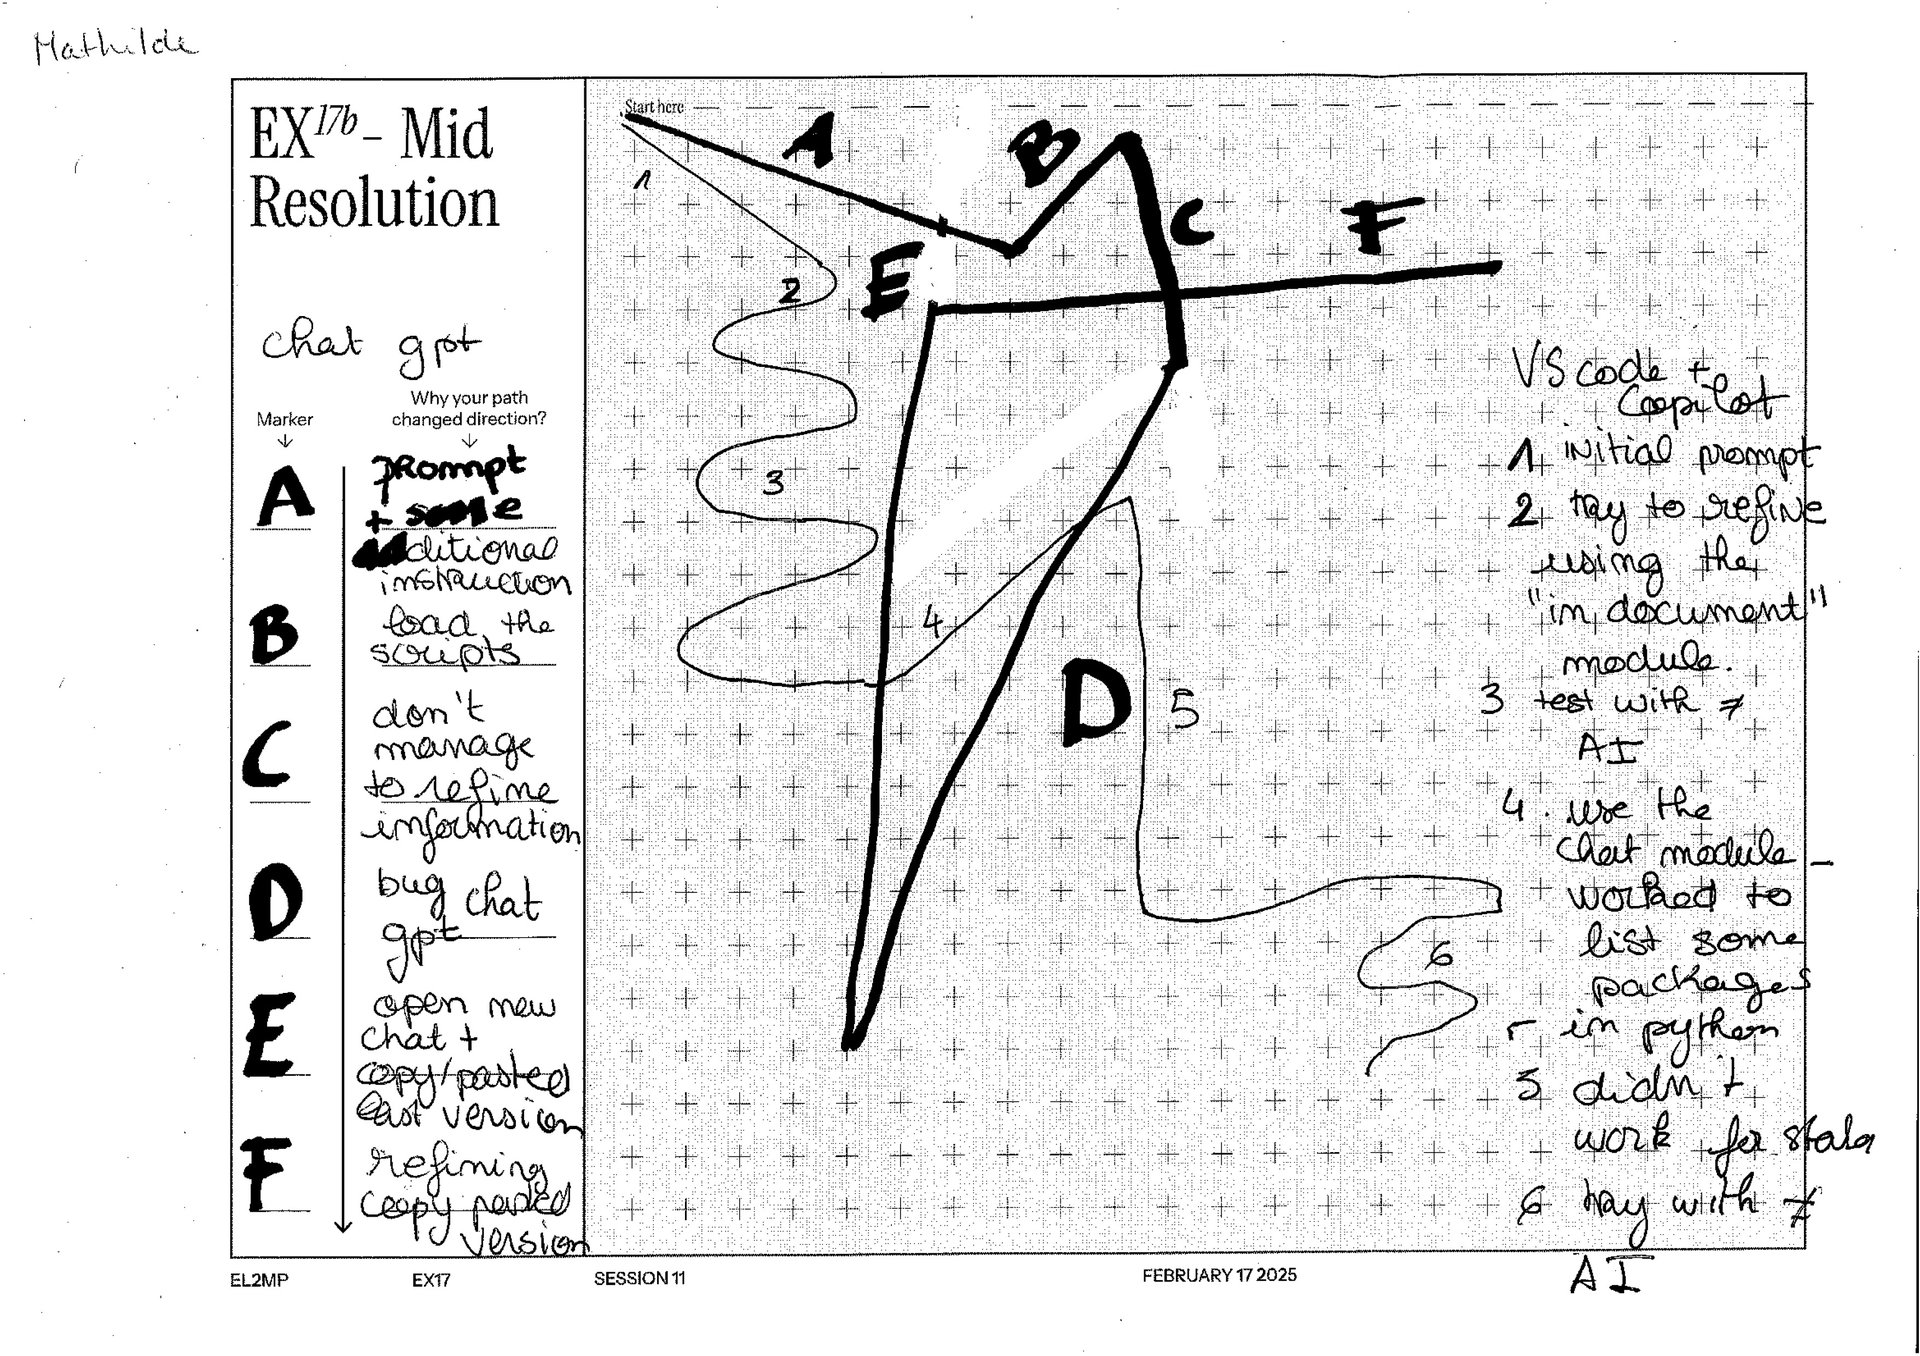 Mathilde
EX17b - Mid
Resolution
chat gpt
Marker
Why your path
changed direction?
A
prompt
+ some
additional
instruction
B
load the
scripts
C
don't
manage
to refine
information
D
bug chat
gpt
E
open new
chat +
copy/pasted
last version
F
refining
copy pasted
version
Start here
A
B
C
D
E
F
1
2
3
4
5
6
VS code +
Copilot
1 initial prompt
2 try to refine
using the
"in document"
module.
3 test with ≠
AI
4. use the
chat module -
worked to
list some
packages
in python
5 didn t
work for
6 try with ≠
AI
EL2MP
EX17
SESSION 11
FEBRUARY 17 2025